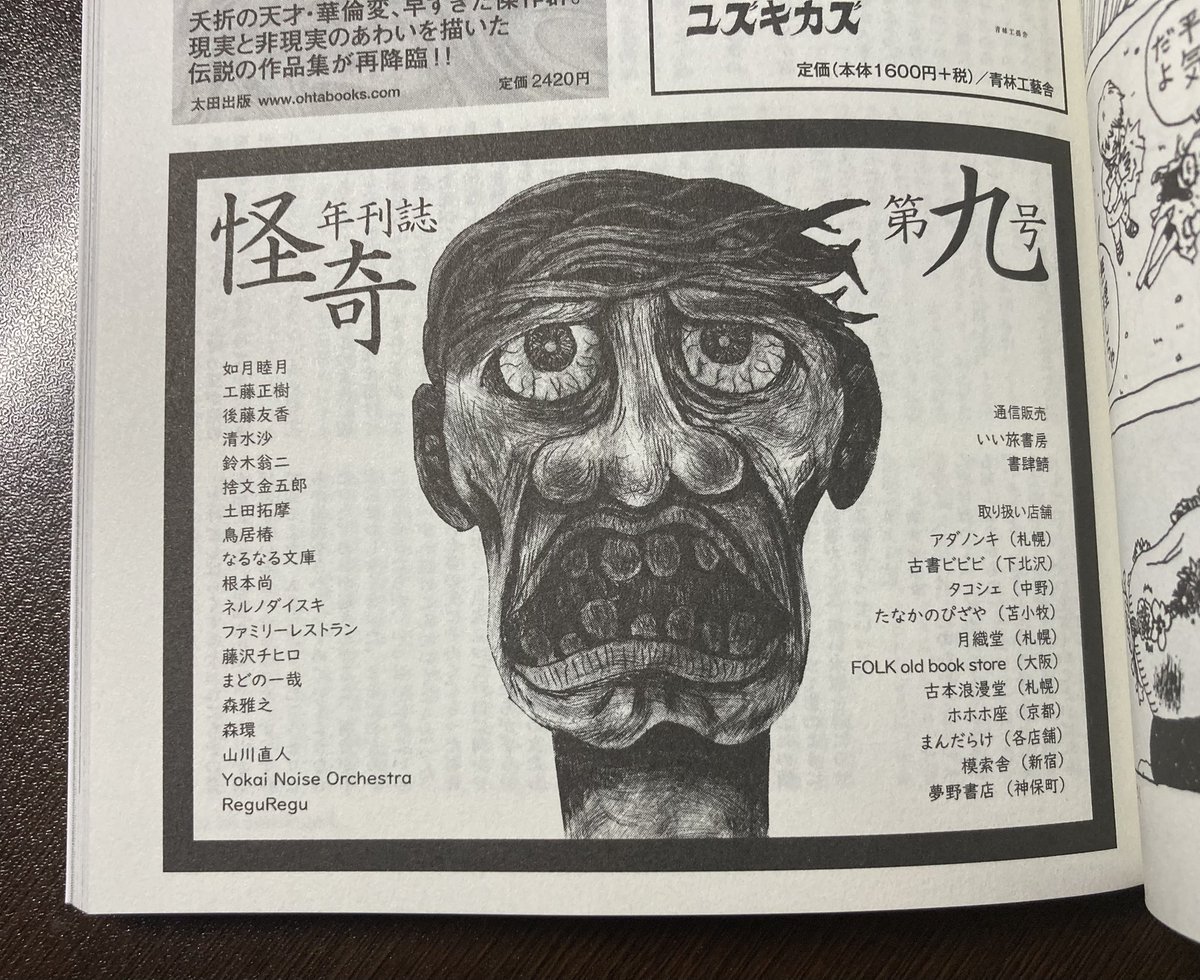 夭折の天才・華倫変、早すぎた傑作群。
現実と非現実のあわいを描いた
伝説の作品集が再降臨!!
定価 2420円
太田出版 www.ohtabooks.com
ユズキカズ
青林工藝舎
定価(本体1600円+税)/青林工藝舎
平気
だよ
怪奇
年刊誌
第九号
如月睦月
工藤正樹
後藤友香
清水沙
鈴木翁二
捨文金五郎
土田拓摩
鳥居椿
なるなる文庫
根本尚
ネルノダイスキ
ファミリーレストラン
藤沢チヒロ
まどの一哉
森雅之
森環
山川直人
Yokai Noise Orchestra
ReguRegu
通信販売
いい旅書房
書肆鯖
取り扱い店舗
アダノンキ(札幌)
古書ビビビ(下北沢)
タコシェ(中野)
たなかのぴざや(苫小牧)
月織堂(札幌)
FOLK old book store(大阪)
古本浪漫堂(札幌)
ホホホ座(京都)
まんだらけ(各店舗)
模索舎(新宿)
夢野書店(神保町)